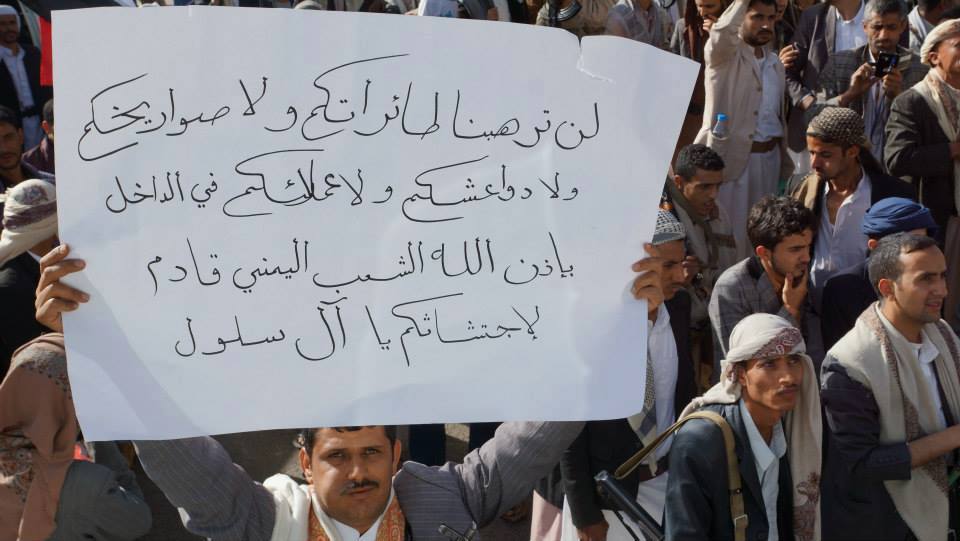 لن ترهبنا طائراتكم ولا صواريخكم
ولا دواعشكم ولا عملائكم في الداخل
بإذن الله الشعب اليمني قادم
لإجتثاثكم يا آل سلول